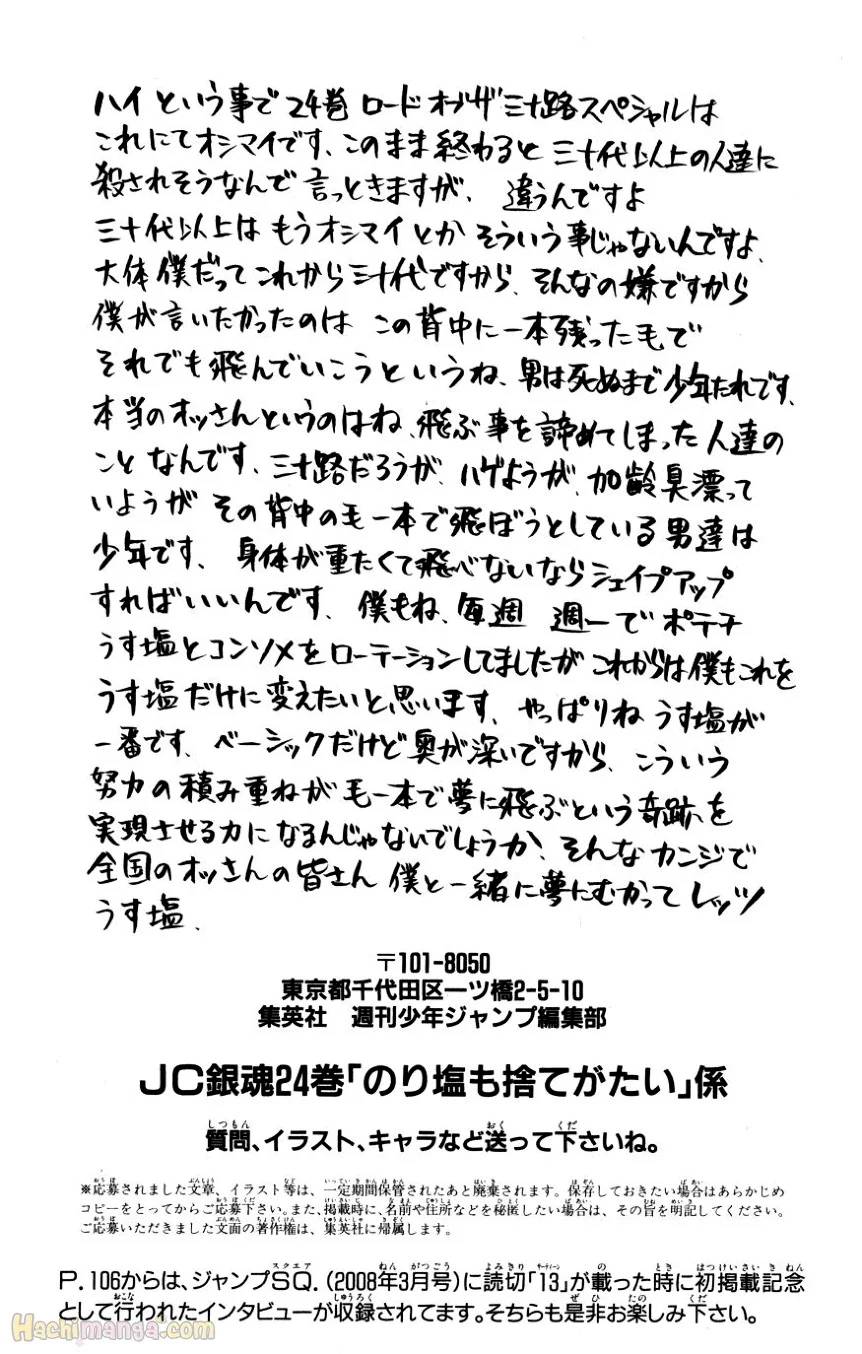 ハイ という事で 24巻 ロード オブ ザ 三十路スペシャルは
これにてオシマイです、このまま終わると 三十代以上の人達に
殺されそうなんで 言っときますが、 違うんですよ
三十代以上は もうオシマイとか そういう事じゃないんですよ、
大体僕だって これから三十代ですから、そんなの嫌ですから
僕が言いたかったのは この背中に一本残った毛で
それでも飛んでいこうというね、男は死ぬまで少年たれです、
本当のオッさんというのはね、飛ぶ事を諦めてしまった人達の
ことなんです、三十路だろうが、ハゲようが、加齢臭漂って
いようが その背中の毛一本で飛ぼうとしている男達は
少年です、 身体が重たくて飛べないならシェイプアップ
すればいいんです、 僕もね、毎週 週一で ポテチ
うす塩とコンソメをローテーションしてましたが これからは僕もこれを
うす塩だけに変えたいと思います、やっぱりね うす塩が
一番です、ベーシックだけど奥が深いですから、こういう
努力の積み重ねが 毛一本で夢に飛ぶという奇跡を
実現させる力になるんじゃないでしょうか、そんなカンジで
全国のオッさんの皆さん 僕と一緒に夢にむかってレッツ
うす塩、
〒101-8050
東京都千代田区一ツ橋2-5-10
集英社 週刊少年ジャンプ編集部
JC銀魂24巻「のり塩も捨てがたい」係
質問、イラスト、キャラなど送って下さいね。
※応募されました文章、イラスト等は、一定期間保管されたあと廃棄されます。保存しておきたい場合はあらかじめ
コピーをとってからご応募下さい。また、掲載時に、名前や住所などを秘匿したい場合は、その旨を明記してください。
ご応募いただきました文面の著作権は、集英社に帰属します。
P.106からは、ジャンプSQ.(2008年3月号)に読切「13」が載った時に初掲載記念
として行われたインタビューが収録されてます。そちらも是非お楽しみ下さい。
Hachimanga.com